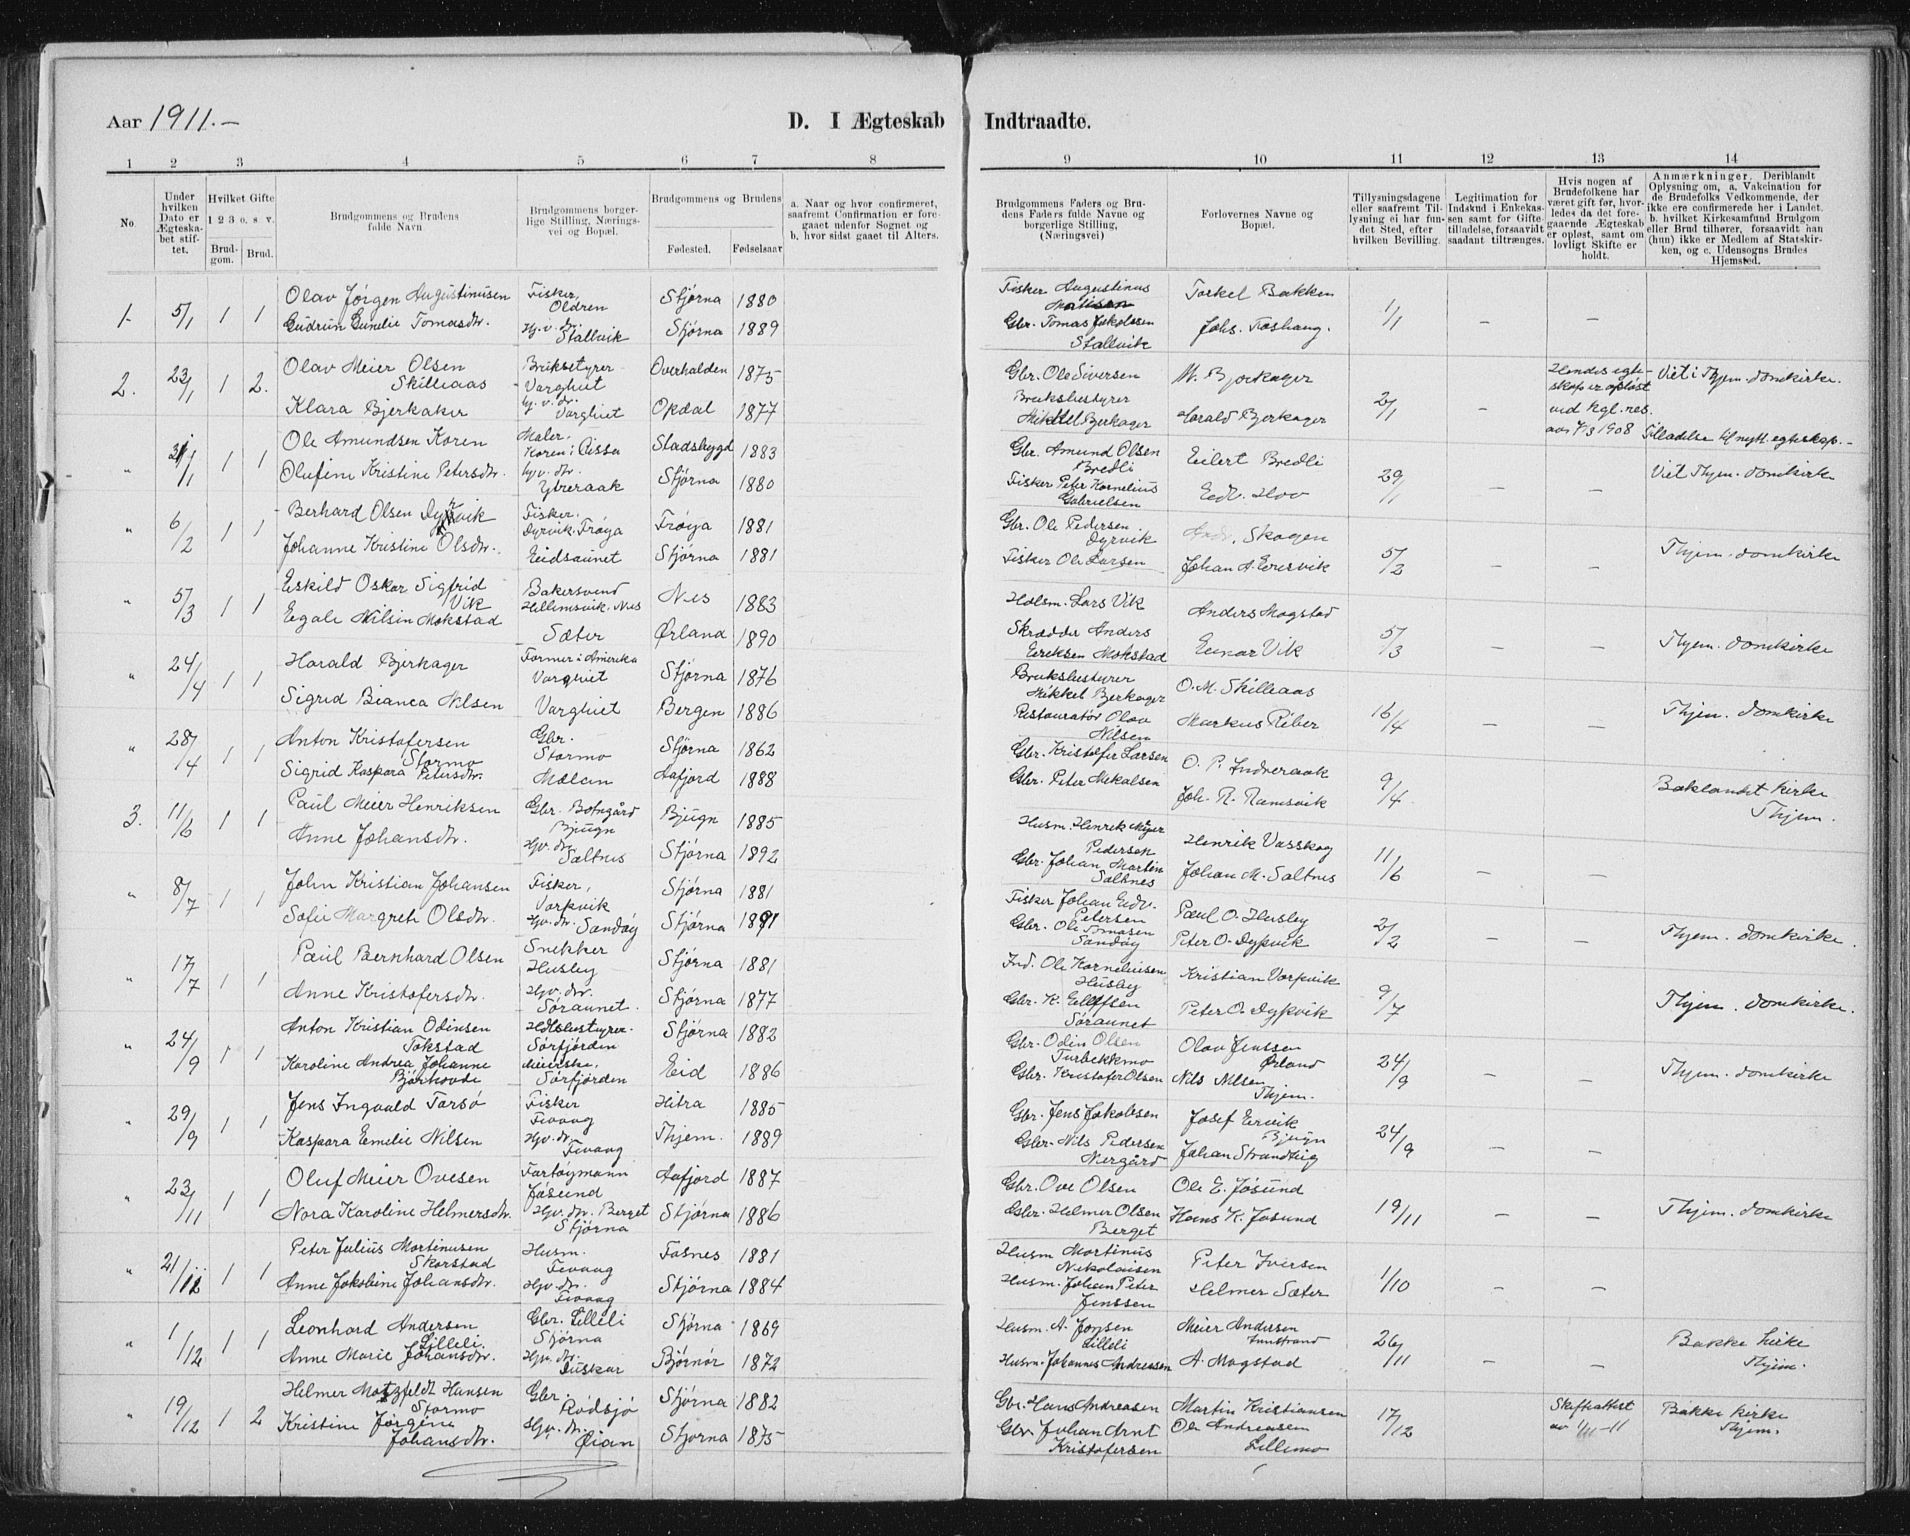 Aar 1911.-
D. I Ægteskab Indtraadte.
1 2 3 4 5 6 7 8 9 10 11 12 13 14
No.
Under hvilken Dato er Ægteskabet stiftet.
Hvilket Gifte
1 2 3 o. s. v.
Brudgom. Brud.
Brudgommens og Brudens fulde Navn
Brudgommens borgerlige Stilling, Næringsvei og Bopæl.
Brudgommens og Brudens
Fødested. Fødselsaar
a. Naar og hvor confirmeret, saafremt Confirmation er foregaaet udenfor Sognet og b. hvor sidst gaaet til Alters.
Brudgommens Faders og Brudens Faders fulde Navne og borgerlige Stilling, (Næringsvei)
Forlovernes Navne og Bopæl.
Tillysningsdagene eller saafremt Tillysning ei har fundet Sted, efter hvilken Bevilling.
Legitimation for Indskud i Enkekassen samt for Giftetilladelse, forsaavidt saadant tiltrænges.
Hvis nogen af Brudefolkene har været gift før, hvorledes da det foregaaende Ægteskab er opløst, samt om lovligt Skifte er holdt.
Anmærkninger. Deriblandt Oplysning om, a. Vakcination for de Brudefolks Vedkommende, der ikke ere confirmerede her i Landet. b. hvilket Kirkesamfund Brudgom eller Brud tilhører, forsaavidt han (hun) ikke er Medlem af Statskirken, og c. Udensogns Brudes Hjemsted.
1. 5/1 1 1 Olav Jörgen Augustinusen Fisker, Oldren Stjørna 1880 Fisker Augustinus Torkel Bakken 1/1 - -
Gudrun Eunelie Tomasdtr. Hjv. dr. Stallvik Stjørna 1889 Gbr. Tomas Jakobsen Stallvik Johs.
2. 23/1 1 2. Olav Meier Olsen Skilliaas Bruksstyrer Varghiet Overhalden 1875 Gbr. Ole Siversen M. Bjerkager 2/1 - Hendes egteskap er opløst ved kgl. res. av 7/3 1908 Viet i Thjem. domkirke.
Klara Bjerkaker hj. v. dr. Varghiet Opdal 1877 Bruksbestyrer Mikkel Bjerkager Harald Bjerkager Tilladelse til nytt egteskap.-
" 31/1 1 1 Ole Amundsen Koren Maler, Koren i Rissa Stadsbygd 1883 Gbr. Amund Olsen Bredli Eilert Bredli 29/1 - - Viet Thjem. domkirke
Olufine Kristine Petersdtr. hjv. dtr. Ytreraak Stjørna 1880 Fisker Peter Kornelius Gabrielsen Edv. Hov
" 6/2 1 1 Berhard Olsen Dyrvik Fisker. Dyrvik. Frøya Frøya 1881 Gbr. Ole Pedersen Dyrvik Andr. Skogen 5/2 - - Thjem. domkirke
Johanne Kristine Olsdtr. Eidsaunet Stjørna 1881 Fisker Ole Larsen Johan A. Eresvik
" 5/3 1 1 Eskild Oskar Sigfrid Vik Bakersvend Hellemsvik. Nes Nes 1883 Holsm. Lars Vik Anders Mogstad 5/3 - - Thjem. domkirke
Egale Nilsin Mokstad Sæter Ørland 1890 Skrædder Anders Eriksen Mokstad Einar Vik
" 24/4 1 1 Harald Bjerkager Farmer i Amerika Varghiet Stjørna 1876 Bruksbestyrer Mikkel Bjerkager O. M. Skilliaas 16/4 - - Thjem. domkirke
Sigrid Bianca Nilsen Varghiet Bergen 1886 Restauratör Olav Nilsen Markus Riber
" 28/4 1 1 Anton Kristofersen Stormo Gbr. Stormo Stjørna 1862 Gbr. Kristoffer Larsen O. P. Indreraak 9/4 Baklandet kirke Thjem.
Sigrid Kaspara Petersdtr. Mælan Aafjord 1888 Gbr. Peter Mekalsen Joh. R. Ramsvik
3. 11/6 1 1 Paul Meier Henriksen Gbr. Botngård Bjugn Bjugn 1885 Husm. Henrik Meyer Pedersen Henrik Vasskog 11/6 - -
Anne Johansdtr. Hjv. dr. Saltnes Stjørna 1892 Gbr. Johan Martin Saltnes Johan M. Saltnes
" 8/7 1 1 John Kristian Johansen Fisker, Vorpvik Stjørna 1881 Fisker Johan Edv. Petersen Paul O. Husby 2/2 - - Thjem. domkirke.
Sofie Margrete Olsdtr. Hjv. dr. Sandöy Stjørna 1891 Gbr. Ole Tomasen Sandöy Peter O. Dypvik
" 17/7 1 1 Paul Bernhard Olsen Snekker Husby Stjørna 1881 Ind. Ole Korneliusen Husby Kristian Vorpvik 9/7 Thjem. domkirke.
Anne Kristofersdtr. Hjv. dr. Söraunet. Stjørna 1877 Gbr. K. Ellefsen Söraunet Peter O. Dypvik
" 24/9 1 1 Anton Kristian Odinsen Tokstad Hdlsbestyrer. Sörfjörden Stjørna 1882 Gbr. Odin Olsen Turbekkmo Olav Jenssen Ørland 24/9 - - Thjem. domkirke
Karoline Andrea Johanne Björhovde Meierske, Sörfjörden Eid 1886 Gbr. Kristofer Olsen Nils Nilsen Thjem.
" 29/9 1 1 Jens Ingvald Tarsø Fisker Fevaag Hitra 1885 Gbr. Jens Jakobsen Josef Ervik Bjugn 24/9 - -
Kaspara Emelie Nilsen Hjv. dr. Fevaag Thjem. 1889 Gbr. Nils Pedersen Nergård Johan Strandheig
" 23/11 1 1 Oluf Meier Ovesen Fartöymann Jösund Aafjord 1887 Gbr. Ove Olsen Ole E. Jösund 19/11 - - Thjem. domkirke
Nora Karoline Helmersdtr. Hjv. dr. Berget Stjørna Stjørna 1886 Gbr. Helmer Olsen Berget Hans K. Jøsund
" 21/11 1 1 Peter Julius Martinusen Skorstad Husm. Fevaag Fosnes 1881 Husm Martinus Nikolaisen Peter Iversen 1/10 - -
Anne Jakobine Johansdtr. Hjv. dr. Fevaag Stjørna 1884 Husm. Johan Peter Jenssen Helmer Sæter
" 1/12 1 1 Leonhard Andersen Lilleli. Gbr. Lilleli Stjørna Stjørna 1869 Husm. A. Jonsen Lilleli Meier Andersen 26/11 - - Bakke kirke Thjem.
Anne Marie Johansdtr. Hjv. dr. Björnör 1872 Husm. Johannes Andreassen A. Mogstad
" 19/12 1 2 Helmer Motzfeldt Hansen Stormo Gbr. Rödsjö Stjørna 1882 Gbr. Hans Andreasen Martin Kristiansen 17/12 Skifteattest av 1/11-11 Bakke kirke Thjem.
Kristine Jørgine Johansdtr. Hjv. dr. Øian Stjørna 1875 Gbr. Johan Arnt Kristofersen Ole Andreasen Lillemo